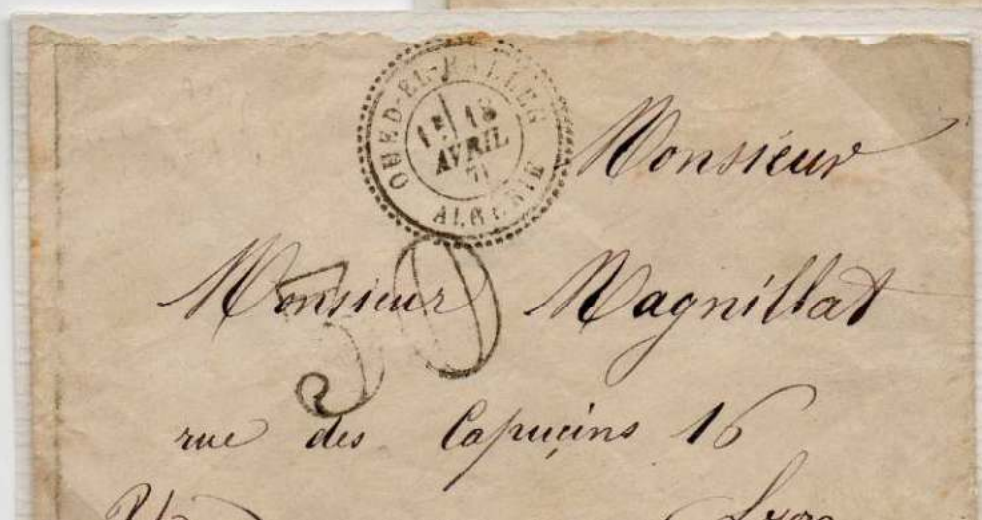 OUED-EL-HALLEG
1E 18
AVRIL
71
ALGERIE
Monsieur
Monsieur Magnillat
50
rue des Capucins 16
Lyon